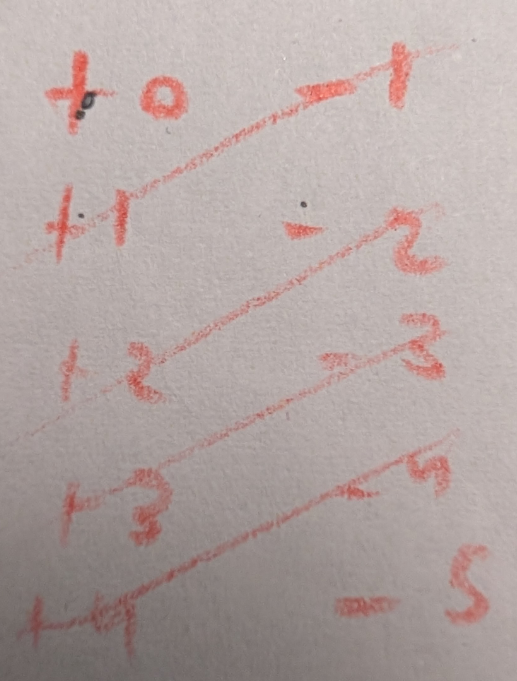 +0 -1
+1 -2
+2 -3
+3 -4
+4 -5